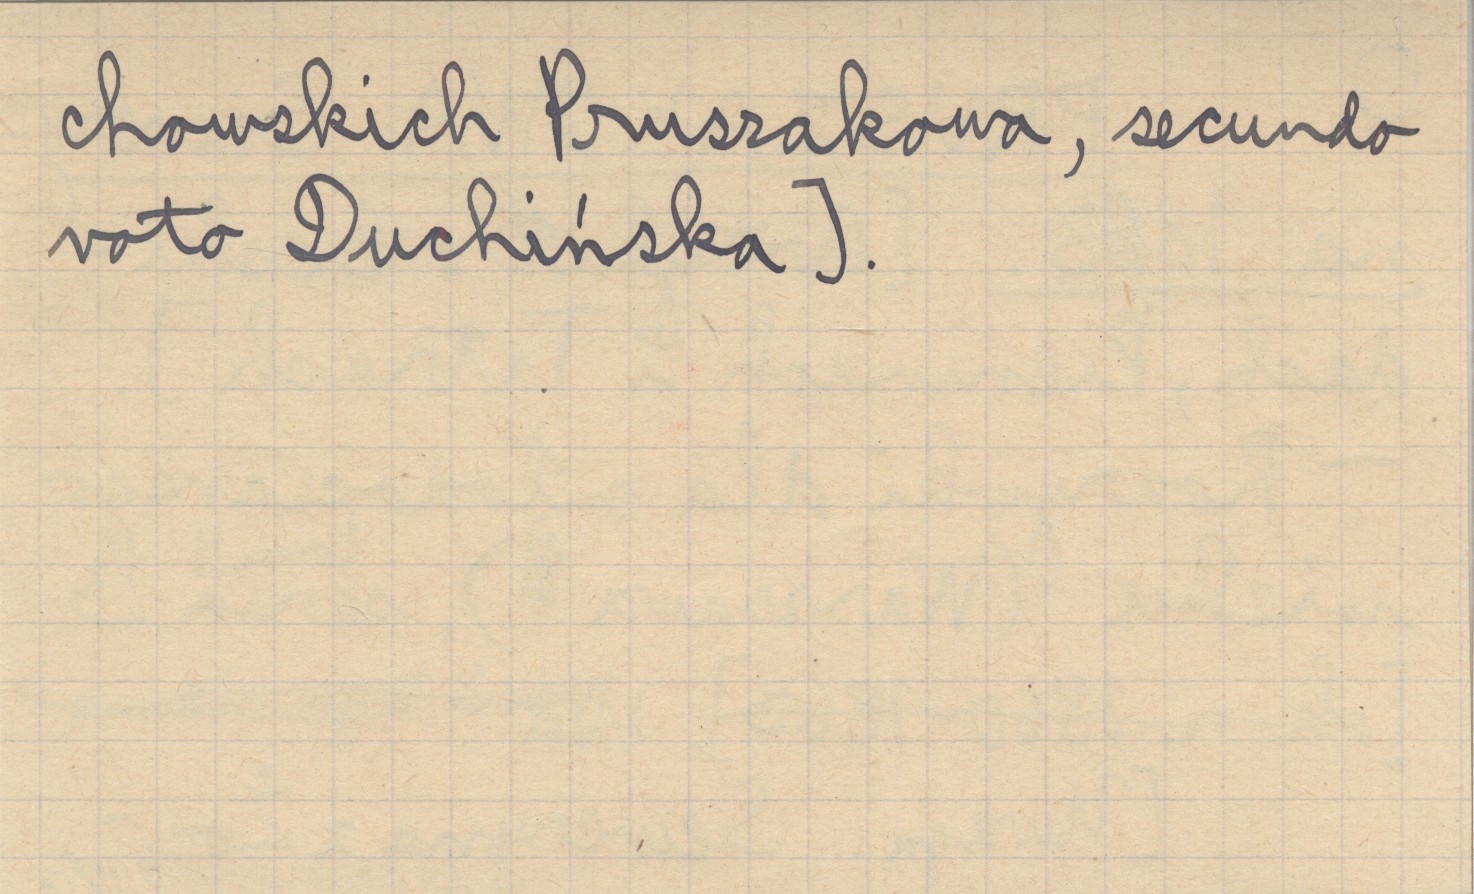 chowskich Pruszakowa, secundo
voto Duchińska].